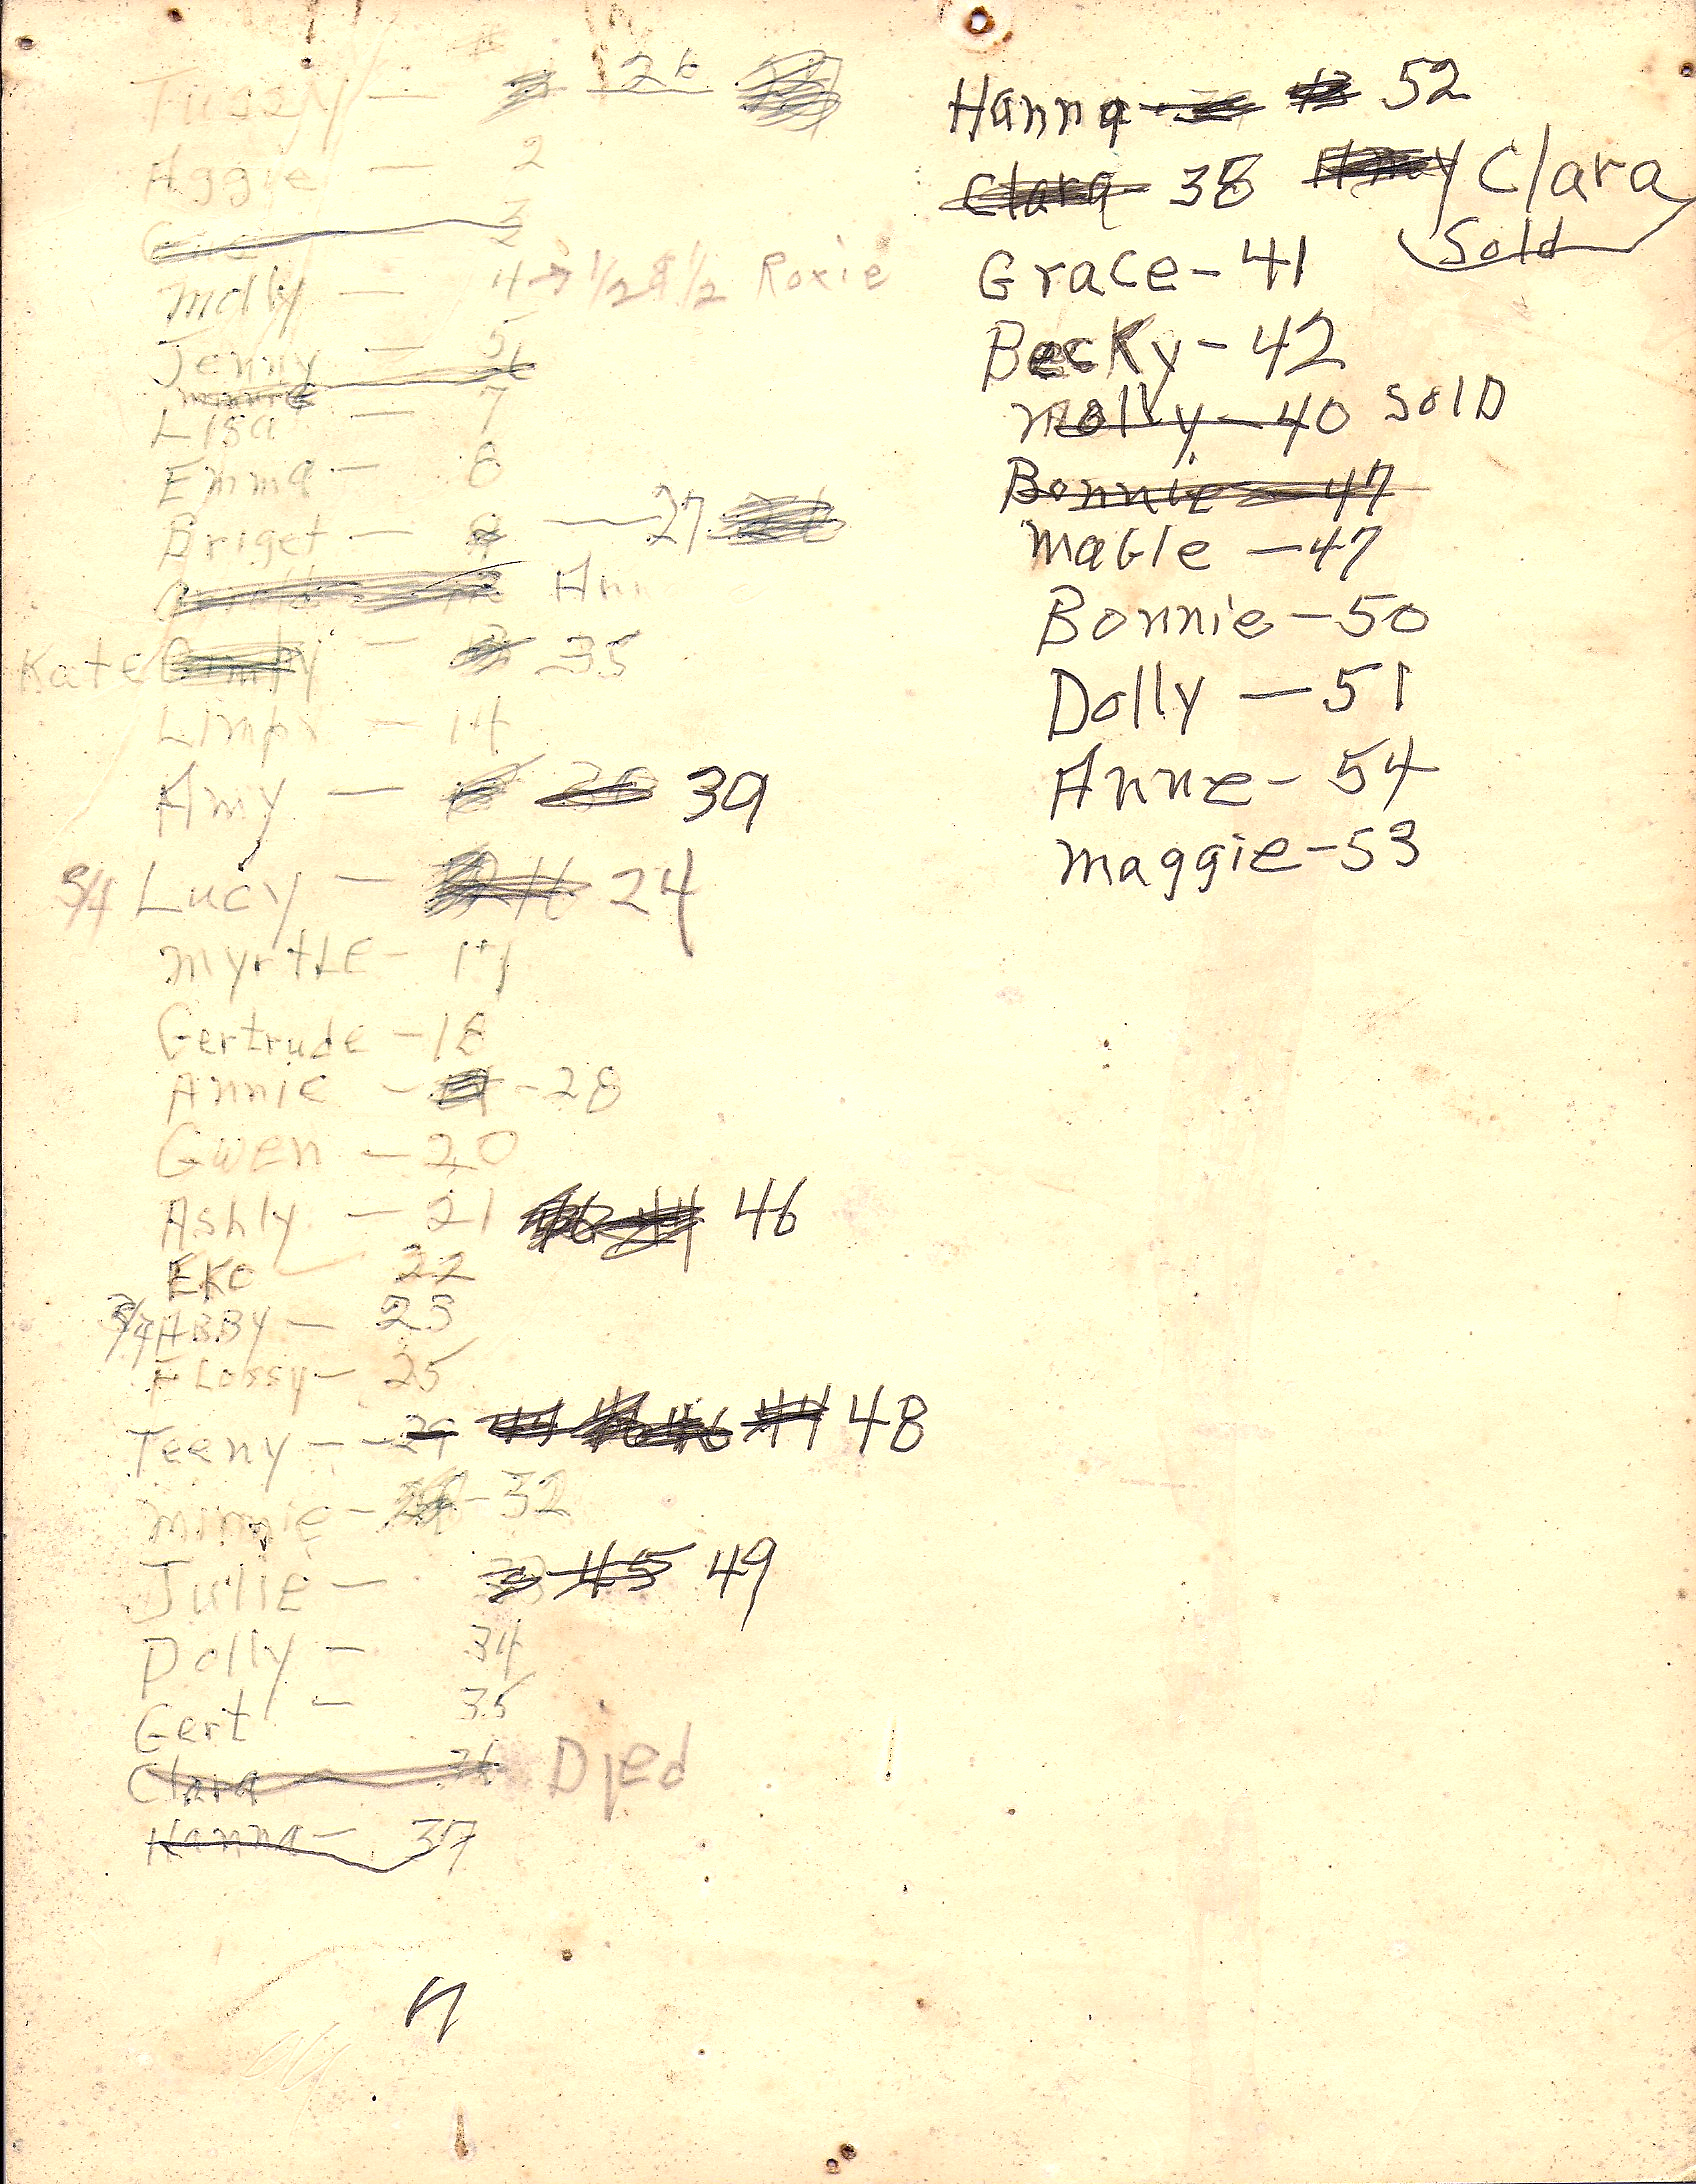 Tussy — 26
Aggie — 2
3
Molly — 4 → 1/2 & 1/2 Roxie
Jenny — 5
Minnie 6
Lisa — 7
Emma — 8
Briget — 27
Ann
Kate — 35
Limpy — 14
Amy — 39
3/4 Lucy — 16 24
MyrtLE - 17
Gertrude - 18
Annie - - 28
GwEn - 20
Ashly - 21 44 46
EKO - 22
3/4 ABBY - 23
FLossy - 25
Teeny - - 29 44 46 44 48
Minnie - - 32
JuliE - 33 45 49
Dolly - 34
Gert - 35
Clara 36 Died
Hanna - 37
n
Hanna - 52
Clara 38 Amy Clara
Sold
Grace - 41
BecKy - 42
Molly - 40 SolD
Bonnie - 47
Mable - 47
Bonnie - 50
Dolly - 51
Anne - 54
Maggie - 53